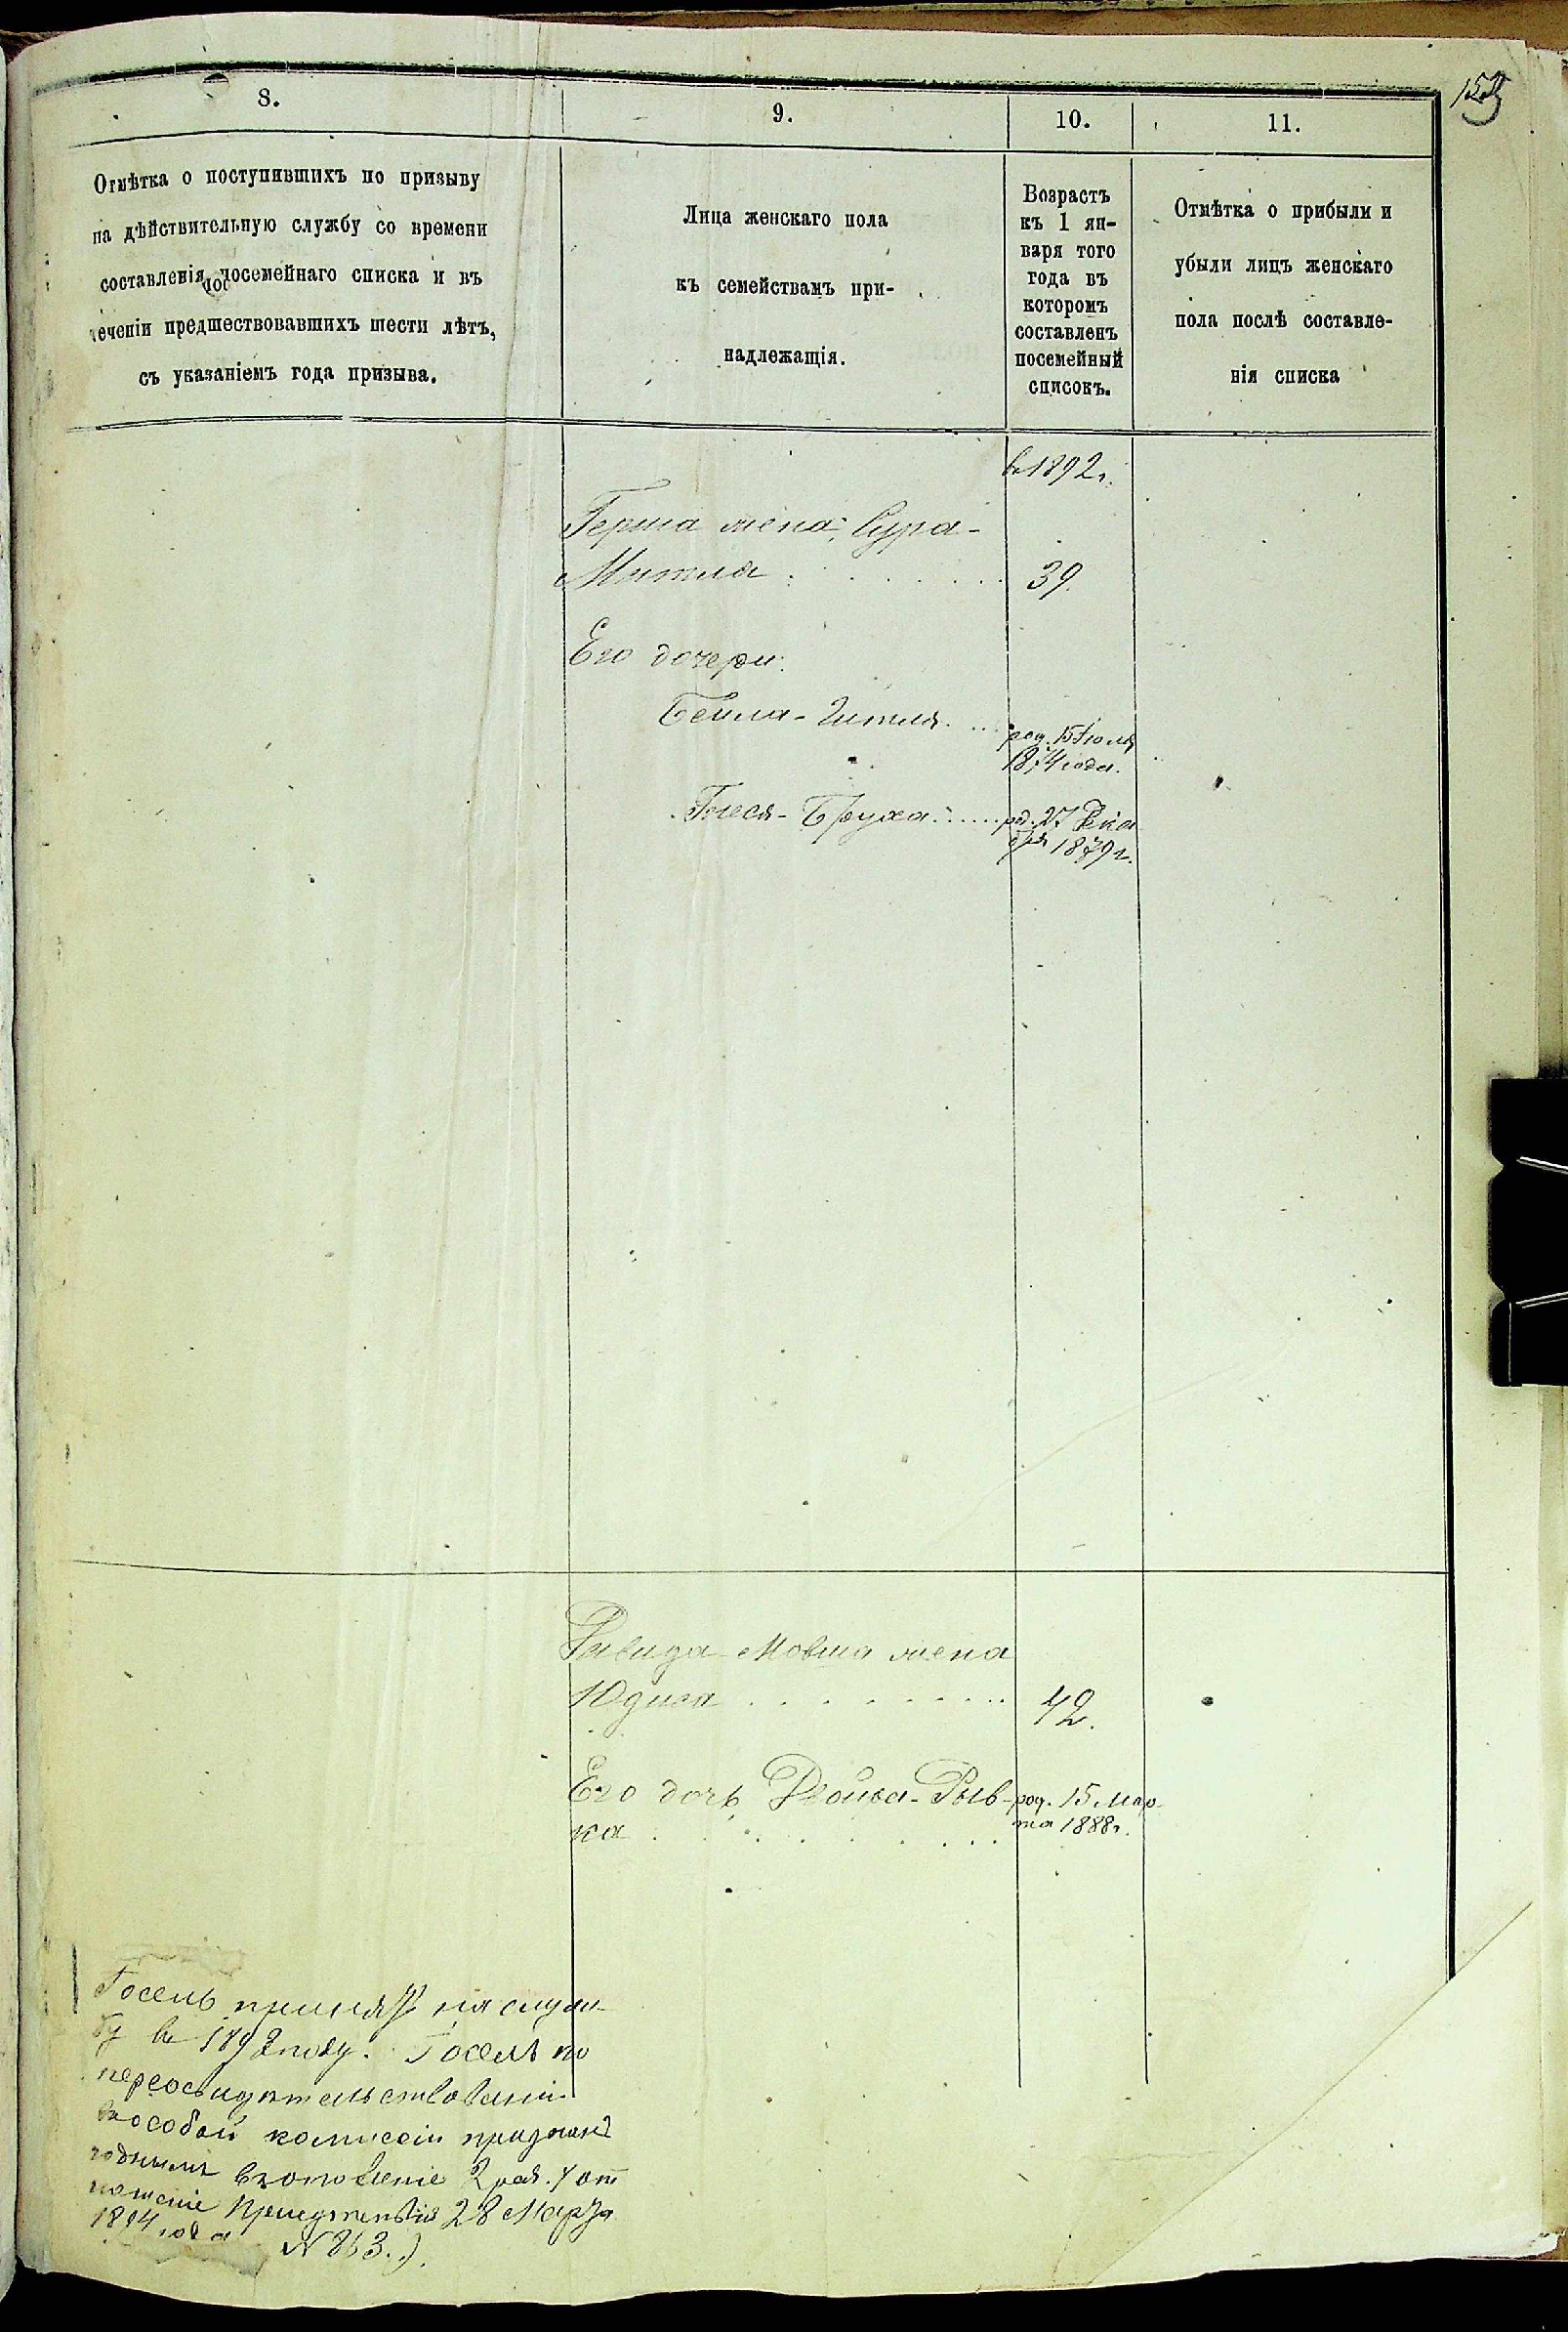 8.
9.
10.
11.
Отмѣтка о поступившихъ по призыву
на дѣйствительную службу со времени
составленія посемейнаго списка и въ
теченіи предшествовавшихъ шести лѣтъ,
съ указаніемъ года призыва.
Лица женскаго пола
къ семействамъ при-
надлежащія.
Возрастъ
къ 1 ян-
варя того
года въ
которомъ
составленъ
посемейный
списокъ.
Отмѣтка о прибыли и
убыли лицъ женскаго
пола послѣ составле-
нія списка
въ 1892 г.
Герша жена, Сура-
Митля 39.
Его дочери:
Бейла-Гитля род. 15 Іюля
1874 года.
Бруха род. 27 Дека
бря 1879 г.
Мовша жена
Юдиса 42.
Его дочь Двойра-Рыв- род. 15 Мар-
ка та 1888 г.
Іосель принятъ на служ-
бу въ 1892 году. Іосель по
переосвидѣтельствованіи
въ особой комисіи признанъ
годнымъ въ ополченіе 2 раз. / от
ношеніе Присутствія 28 Марта
1894 года № 863.).